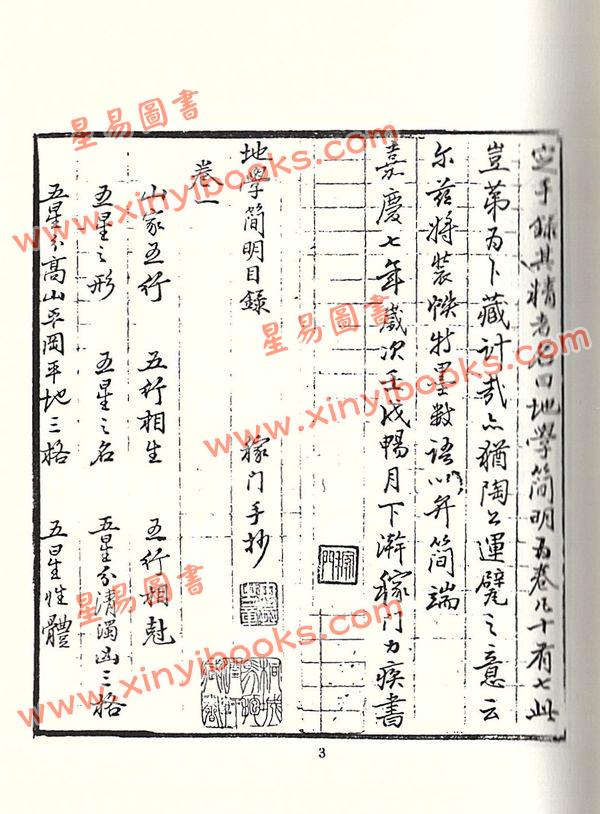 手錄其精者名曰地學简明为卷凡十有七此
豈第为卜藏計哉亦猶陶公運甓之意云
尔兹將裝帙特墨数语以弁简端
嘉慶七年歲次壬戌暢月下澣稼门力疾書
稼門
地學简明目錄 稼门手抄
卷一
山家五行 五行相生 五行相尅
五星之形 五星之名 五星分清濁凶三格
五星分高山平岡平地三格 五星性體
3
星易圖書
www.xinyibooks.com
星易圖書
www.xinyibooks.com
星易圖書
www.xinyibooks.com